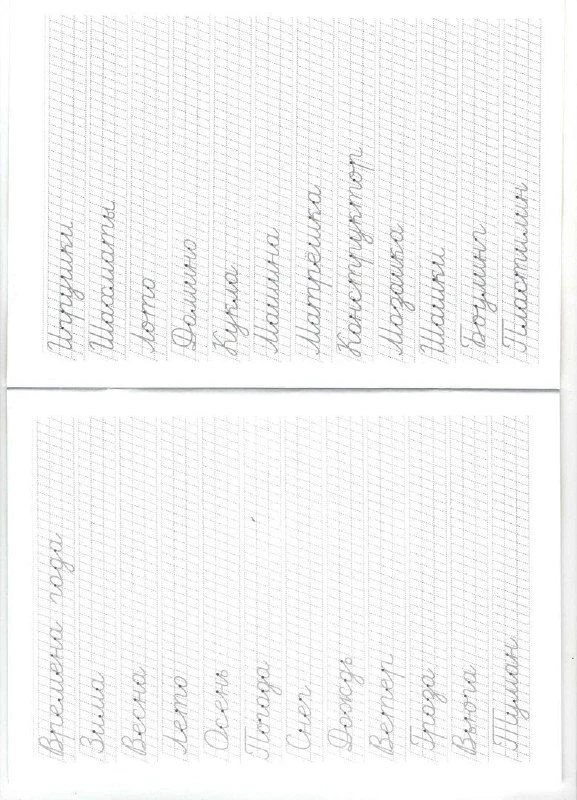 Времена года
Зима
Весна
Лето
Осень
Погода
Снег
Дождь
Ветер
Гроза
Вьюга
Туман
Игрушки
Шахматы
Лото
Домино
Кукла
Машина
Матрёшка
Конструктор
Мозаика
Шашки
Боулинг
Пластилин